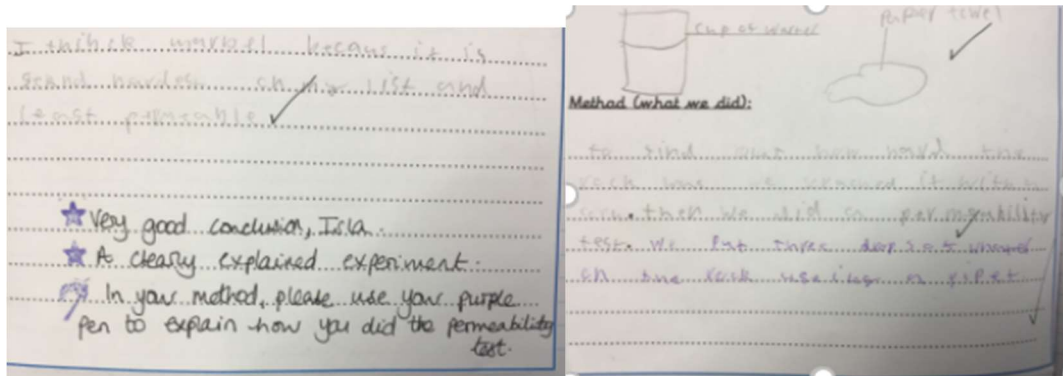 I think marbel becaus it is
scond hardest on my list and
least permeable
Very good conclusion, Isla.
A clearly explained experiment.
In your method, please use your purple
pen to explain how you did the permeability
test.
cup of water
paper towel
Method (what we did):
to find out how hard the
rock was we scrached it with a
then we did a permeability
test. we put three drops of
on the rock useing a pipet